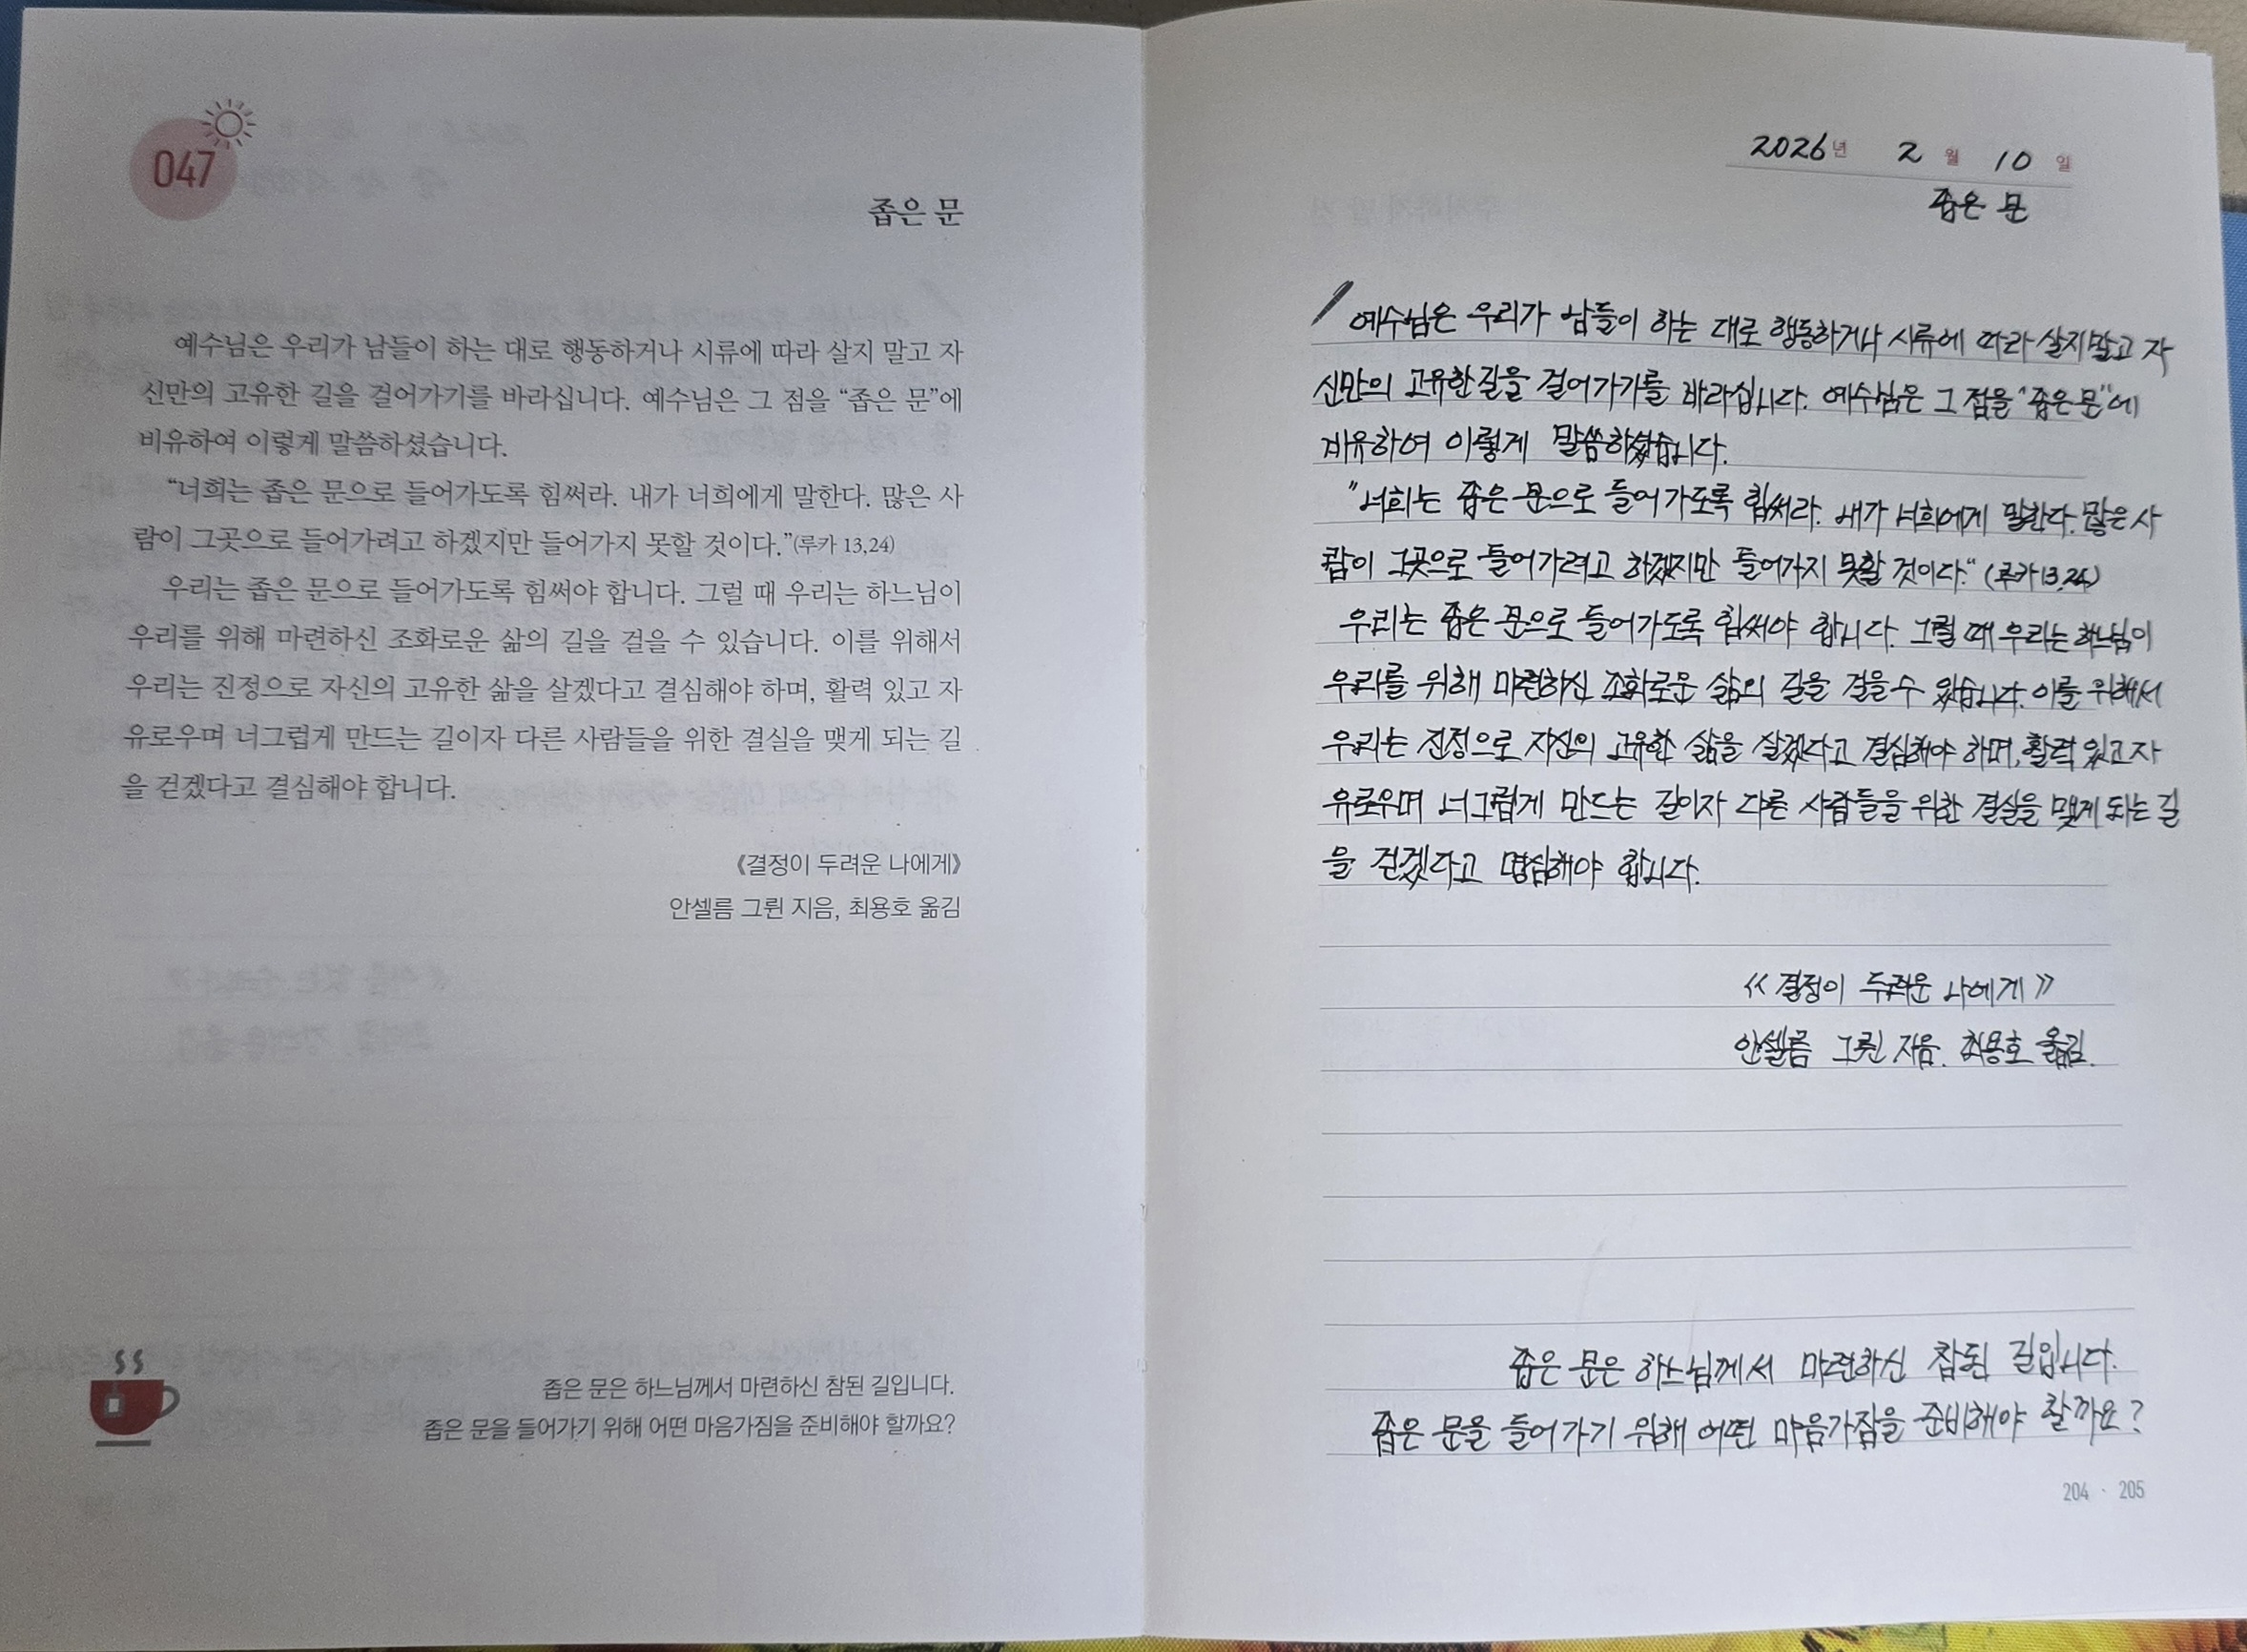 047
좁은 문
예수님은 우리가 남들이 하는 대로 행동하거나 시류에 따라 살지 말고 자
신만의 고유한 길을 걸어가기를 바라십니다. 예수님은 그 점을 “좁은 문”에
비유하여 이렇게 말씀하셨습니다.
“너희는 좁은 문으로 들어가도록 힘써라. 내가 너희에게 말한다. 많은 사
람이 그곳으로 들어가려고 하겠지만 들어가지 못할 것이다.”(루카 13,24)
우리는 좁은 문으로 들어가도록 힘써야 합니다. 그럴 때 우리는 하느님이
우리를 위해 마련하신 조화로운 삶의 길을 걸을 수 있습니다. 이를 위해서
우리는 진정으로 자신의 고유한 삶을 살겠다고 결심해야 하며, 활력 있고 자
유로우며 너그럽게 만드는 길이자 다른 사람들을 위한 결실을 맺게 되는 길
을 걷겠다고 결심해야 합니다.
《결정이 두려운 나에게》
안셀름 그륀 지음, 최용호 옮김
좁은 문은 하느님께서 마련하신 참된 길입니다.
좁은 문을 들어가기 위해 어떤 마음가짐을 준비해야 할까요?
2026년 2월 10일
좁은 문
예수님은 우리가 남들이 하는 대로 행동하거나 시류에 따라 살지말고 자
신만의 고유한길을 걸어가기를 바라십니다. 예수님은 그 점을 "좁은문"에
비유하여 이렇게 말씀하셨습니다.
"너희는 좁은 문으로 들어가도록 힘써라. 내가 너희에게 말한다. 많은 사
람이 그곳으로 들어가려고 하겠지만 들어가지 못할 것이다." (루카13,24)
우리는 좁은 문으로 들어가도록 힘써야 합니다. 그럴 때 우리는 하느님이
우리를 위해 마련하신 조화로운 삶의 길을 걸을수 있습니다. 이를 위해서
우리는 진정으로 자신의 고유한 삶을 살겠다고 결심해야 하며, 활력 있고 자
유로우며 너그럽게 만드는 길이자 다른 사람들을 위한 결실을 맺게 되는 길
을 걷겠다고 명심해야 합니다.
《결정이 두려운 나에게》
안셀름 그륀 지음. 최용호 옮김.
좁은 문은 하느님께서 마련하신 참된 길입니다.
좁은 문을 들어가기 위해 어떤 마음가짐을 준비해야 할까요?
204 · 205